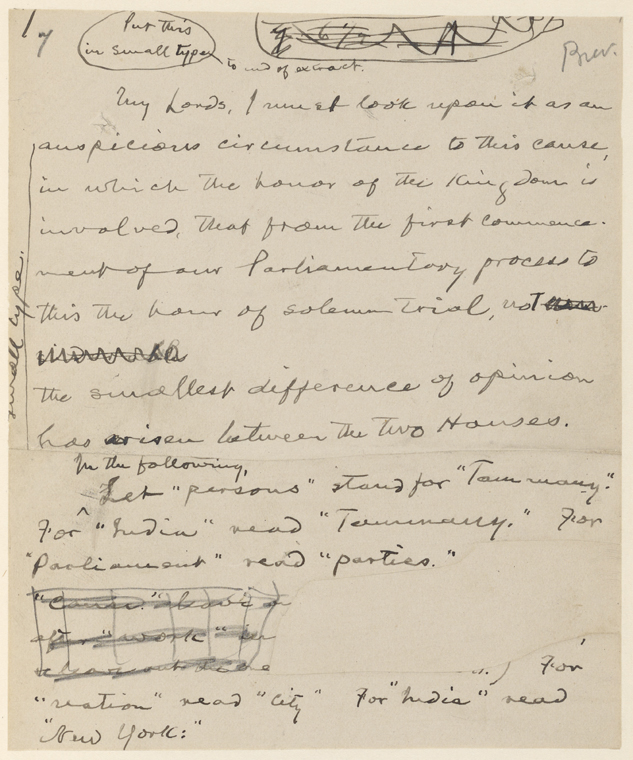 7
Put this
in small type
to end of extract.
Brev.
My Lords, I must look upon it as an
auspicious circumstance to this cause,
in which the honor of the Kingdom is
involved, that from the first commence-
ment of our Parliamentary process to
this the hour of solemn trial, not
the smallest difference of opinion
has arisen between the two Houses.
small type.
In the following,
Let "persons" stand for "Tammany."
For "India" read "Tammany." For
"Parliament" read "parties."
For
"nation" read "city" For "India" read
"New York:"